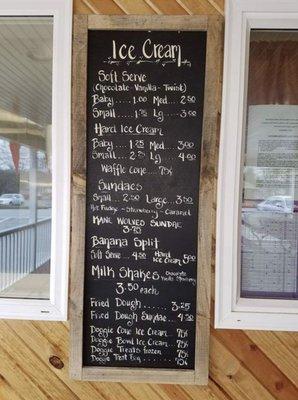 Ice Cream
Soft Serve
(Chocolate - Vanilla - Twist)
Baby .... 1.00 Med... 2.50
Small .... 2.00 Lg .... 3.00
Hard Ice Cream
Baby .... 1.25 Med... 3.00
Small .... 2.75 Lg .... 4.00
Waffle Cone .... 75¢
Sundaes
Small .... 2.50 Large .... 3.50
Hot Fudge - Strawberry - Caramel
KANE WOLVES SUNDAE
3.75
Banana Split
Soft Serve .. 4.50 Hard Ice Cream 5.00
Milk Shakes Chocolate Vanilla Strawberry
3.50 each
Fried Dough ....... 3.25
Fried Dough Sundae... 4.50
Doggie Cone Ice Cream... 75¢
Doggie Bowl Ice Cream... 75¢
Doggie Treats frozen .... 75¢
Doggie Treat Bag .... 75¢